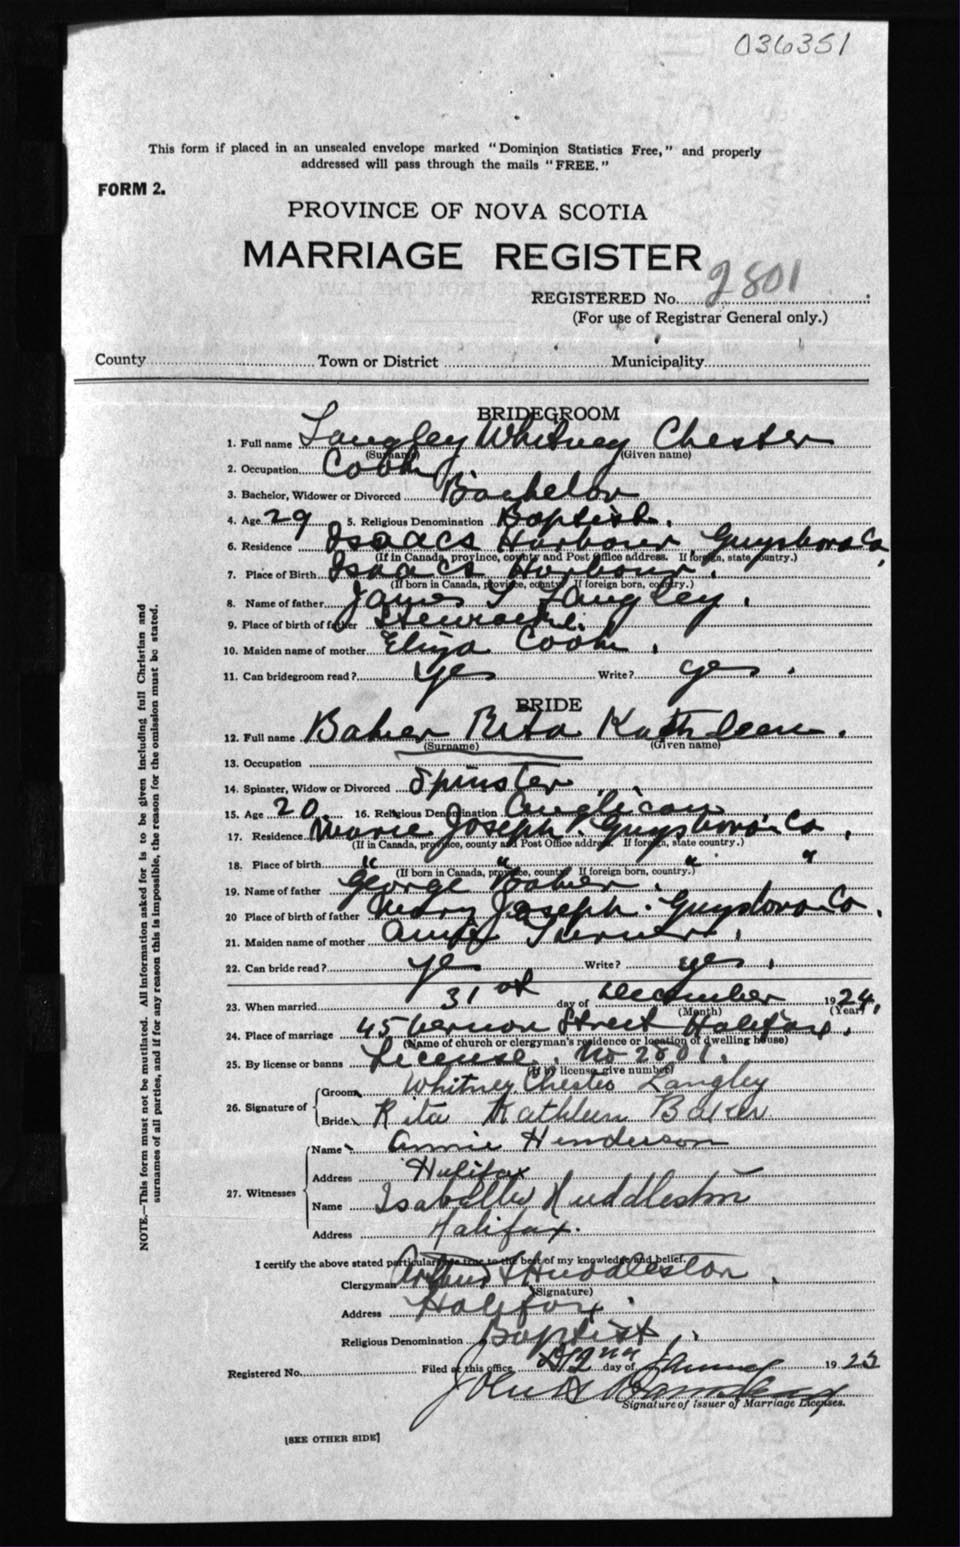 036351
This form if placed in an unsealed envelope marked "Dominion Statistics Free," and properly
addressed will pass through the mails "FREE."
FORM 2.
PROVINCE OF NOVA SCOTIA
MARRIAGE REGISTER
REGISTERED No. 2801
(For use of Registrar General only.)
County Town or District Municipality
BRIDEGROOM
1. Full name Langley Whitney Chester
(Surname) (Given name)
2. Occupation Cook
3. Bachelor, Widower or Divorced Bachelor
4. Age 29 5. Religious Denomination Baptist.
6. Residence Isaacs Harbour Guysboro Co.
(If in Canada, province, county and Post Office address. If foreign, state country.)
7. Place of Birth Isaacs Harbour.
(If born in Canada, province, county. If foreign born, country.)
8. Name of father James S Langley.
9. Place of birth of father
10. Maiden name of mother Eliza Cook.
11. Can bridegroom read? yes Write? yes.
BRIDE
12. Full name Baker Rita Kathleen.
(Surname) (Given name)
13. Occupation
14. Spinster, Widow or Divorced Spinster
15. Age 20. 16. Religious Denomination Anglican
17. Residence Marie Joseph. Guysboro Co.
(If in Canada, province, county and Post Office address. If foreign, state country.)
18. Place of birth " " " "
(If born in Canada, province, county. If foreign born, country.)
19. Name of father George Baker.
20 Place of birth of father Mary Joseph. Guysboro Co.
21. Maiden name of mother
22. Can bride read? yes Write? yes.
23. When married 31st day of December 1924.
(Month) (Year)
24. Place of marriage 45 Vernon Street Halifax.
(Name of church or clergyman's residence or location of dwelling house)
25. By license or banns License. No 2801.
(If by license give number)
26. Signature of
Groom Whitney Chester Langley
Bride Rita Kathleen Baker
27. Witnesses
Name Annie Henderson
Address Halifax
Name Isabelle Huddleston
Address Halifax.
I certify the above stated particulars are true to the best of my knowledge and belief.
Clergyman Arthur S Huddleston.
(Signature)
Address Halifax.
Religious Denomination Baptist
Registered No. Filed at this office day of 1925
John
Signature of Issuer of Marriage Licenses.
[SEE OTHER SIDE]
NOTE.—This form must not be mutilated. All information asked for is to be given including full Christian and
surnames of all parties, and if for any reason this is impossible, the reason for the omission must be stated.